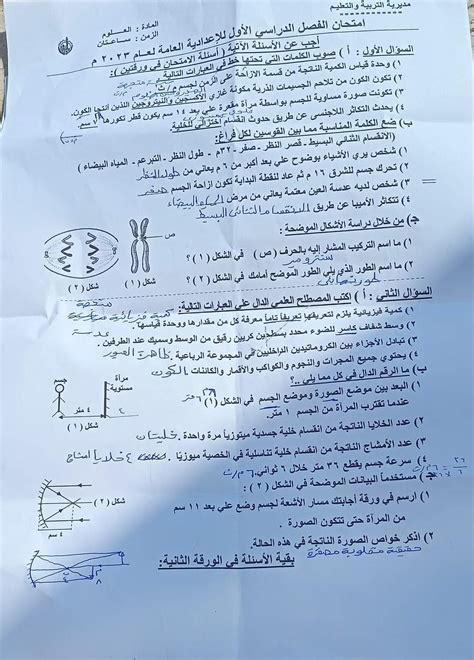 مديرية التربية والتعليم
امتحان الفصل الدراسي الأول للإعدادية العامة لعام ٢٠٢٣ م
المادة : العلوم
الزمن : ساعتان
أجب عن الأسئلة الآتية ( أسئلة الامتحان في ورقتين )
السؤال الأول : أ ) صوب الكلمات التي تحتها خط في العبارات التالية
١) وحدة قياس الكمية الناتجة من قسمة الازاحة على الزمن لجسم م/ث
٢) تكون الكون من تلاحم الجسيمات الذرية مكونة غازي الأكسجين والنيتروجين اللذين أنتجا الكون.
٣) تكونت صورة مساوية للجسم بواسطة مرآة مقعرة علي بعد ١٤ سم يكون قطر تكورها ٧ سم.
٤) يحدث التكاثر اللاجنسى عن طريق حدوث انقسام اختزالي للخلية.
ب) ضع الكلمة المناسبة مما بين القوسين لكل فراغ:
(الانقسام الثنائي البسيط - قصر النظر - صفر - ٣٢م - طول النظر - التبرعم - المياه البيضاء )
١) شخص يري الأشياء بوضوح علي بعد أكبر من ٦ م يعاني من طول النظر
٢) تحرك جسم للشرق ١٦ م ثم عاد لنقطة البداية تكون ازاحة الجسم صفر
٣) شخص لديه عدسة العين معتمة يعاني من مرض المياه البيضاء
٤) تتكاثر الأميبا عن طريق الانقسام الثنائى البسيط
ج) من خلال دراسة الأشكال الموضحة :
١) ما اسم التركيب المشار إليه بالحرف ( ص ) في الشكل (١) ؟
سنترومير
٢) ما اسم الطور الذي يلي الطور الموضح أمامك في الشكل (٢) ؟
ص
شكل (١)
شكل (٢)
السؤال الثاني : أ ) اكتب المصطلح العلمي الدال علي العبارات التالية:
١) كمية فيزيائية يلزم لتعريفها تعريفاً تاماً معرفة كل من مقدارها ووحدة قياسها. كمية فيزيائية
٢) وسط شفاف كاسر للضوء محدد بسطحين كريين رقيق من الوسط وسميك عند الطرفين . عدسة
٣) تبادل الأجزاء بين الكروماتيدين الداخليين في المجموعة الرباعية . ظاهرة العبور
٤) يحتوي جميع المجرات والنجوم والكواكب والأقمار والكائنات . الكون
ب) ما الرقم الدال في كل مما يلي ..؟
١) البعد بين موضع الصورة وموضع الجسم في الشكل (١)
عندما تقترب المرآة من الجسم ١ متر.
٢) عدد الخلايا الناتجة من انقسام خلية جسدية ميتوزياً مرة واحدة . خليتان
٣) عدد الأمشاج الناتجة من انقسام خلية تناسلية في الخصية ميوزياً. ٤ خلايا امشاج
٤) سرعة جسم يقطع ٣٦ متر خلال ٦ ثواني. ٦ م/ث
مرآة
مستوية
٤ متر
شكل (١)
ج) مستخدماً البيانات الموضحة في شكل (٢) :
١) ارسم في ورقة أجابتك مسار الأشعة لجسم وضع علي بعد ١١ سم
من المرآة حتى تتكون الصورة .
٢) اذكر خواص الصورة الناتجة في هذه الحالة.
حقيقية مقلوبة مصغرة
شكل (٢)
٤ سم
بقية الأسئلة في الورقة الثانية: